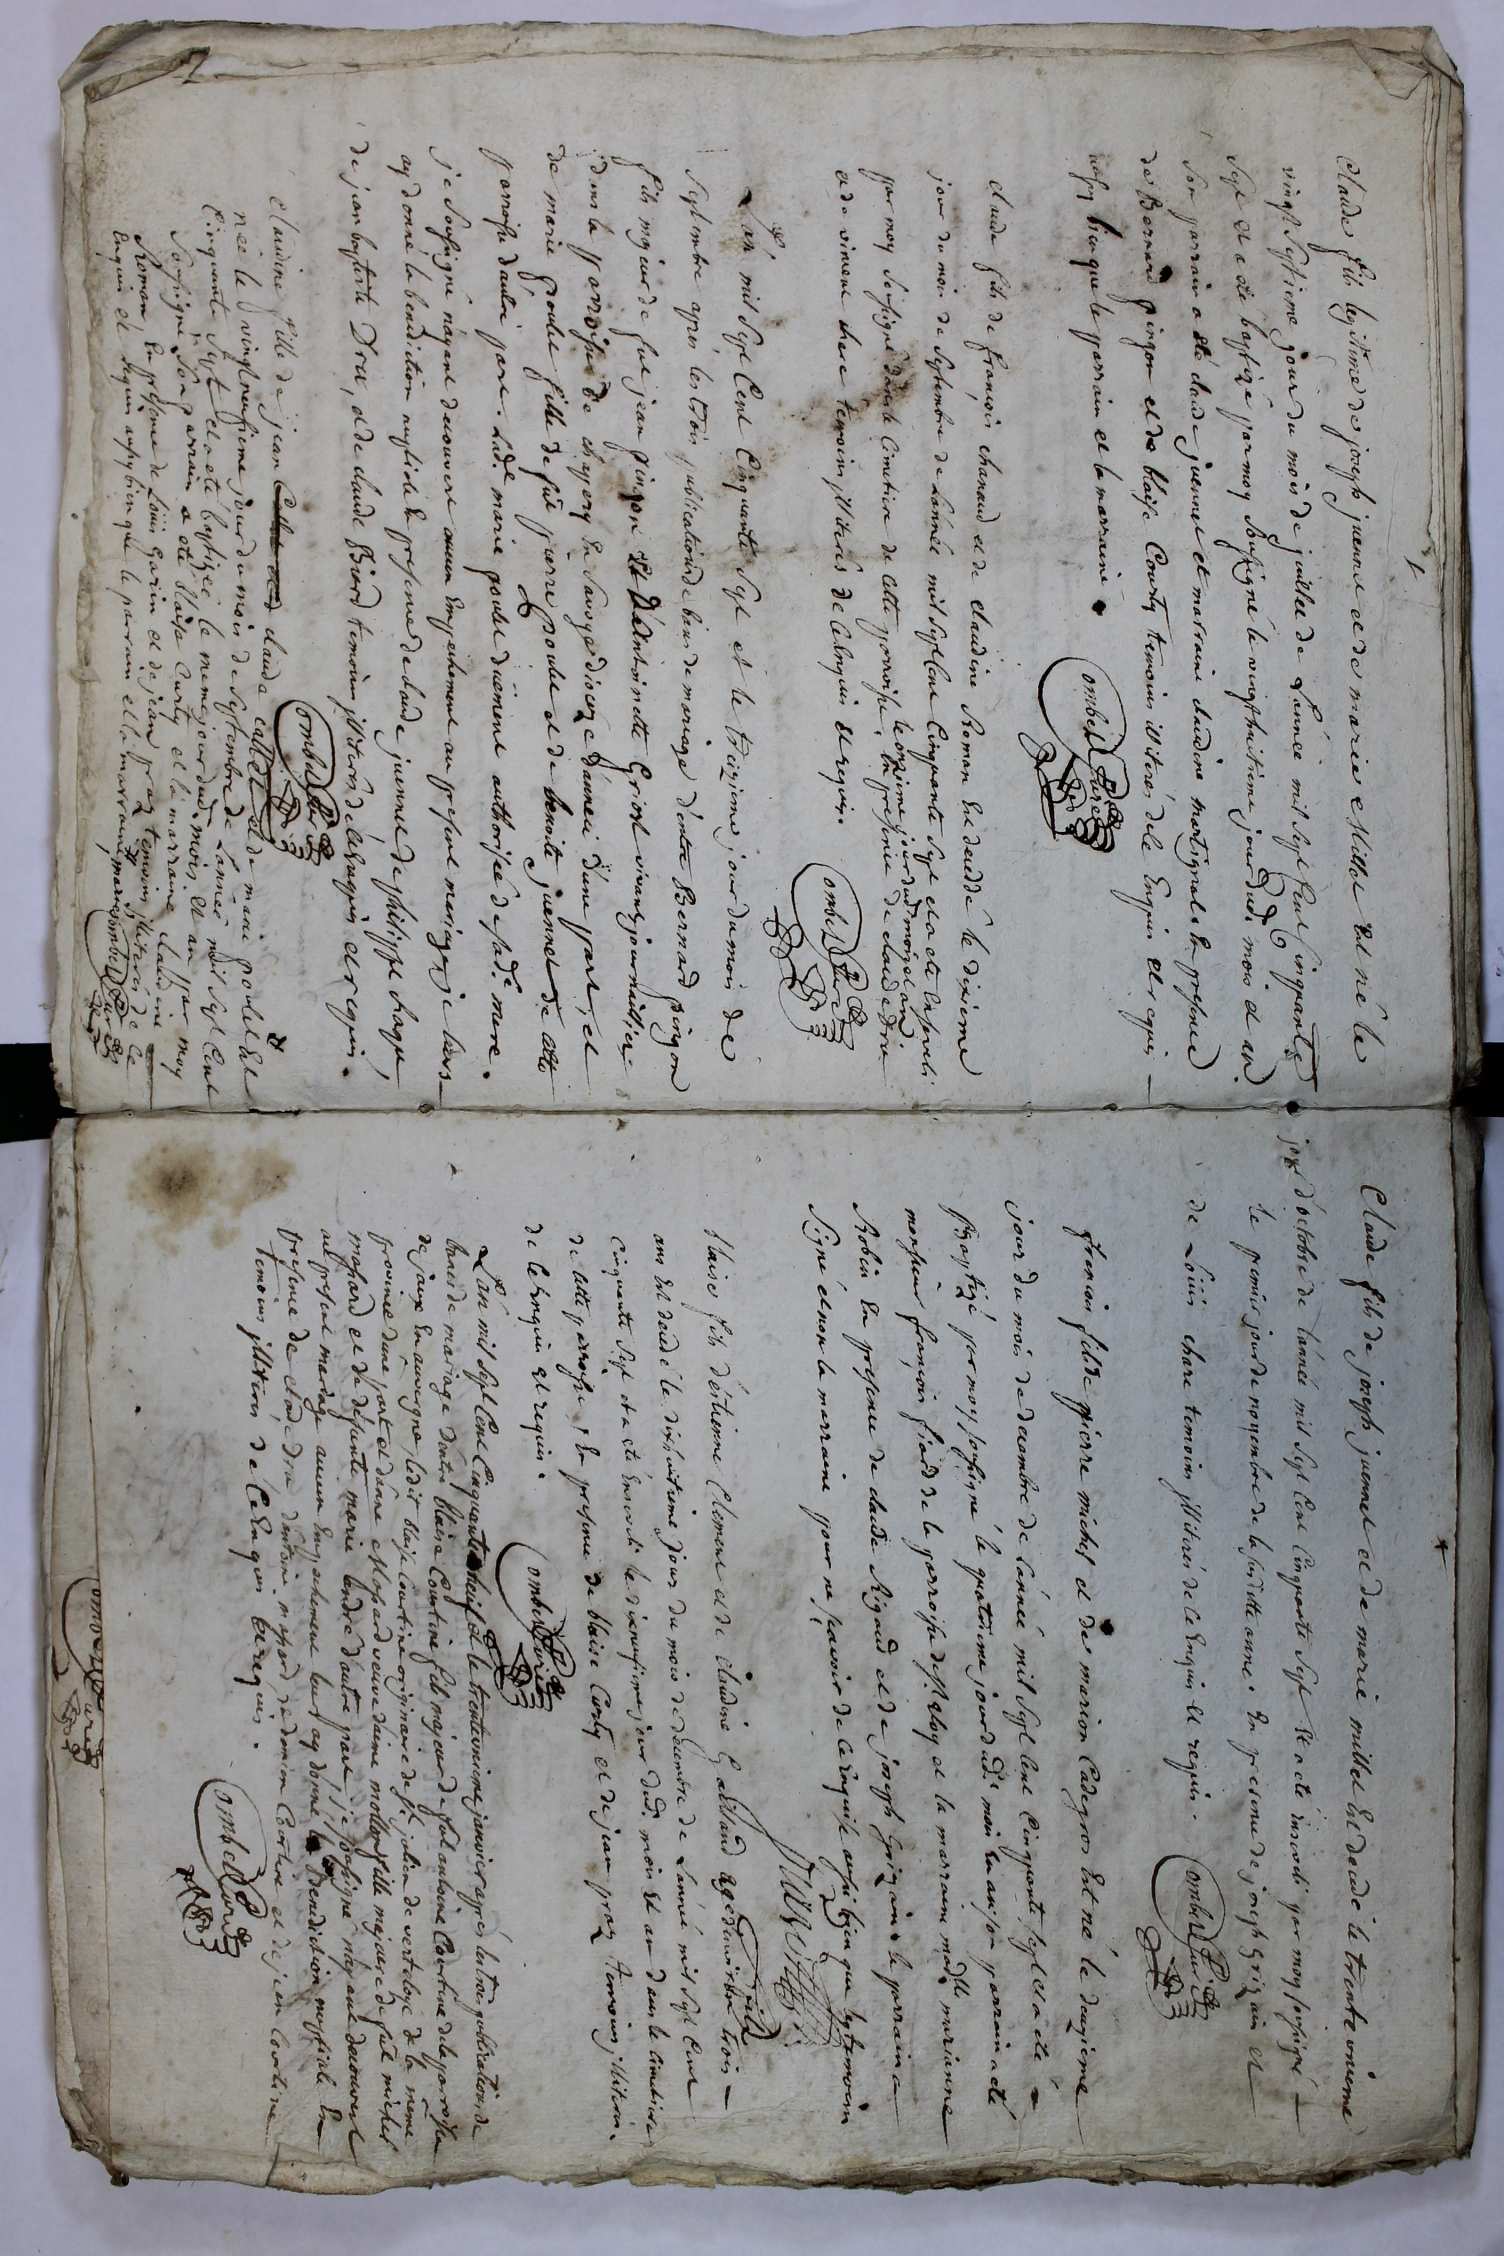 Claude fils legitime de joseph juennet et de marie millet Est né le
vingt septieme jour du mois de juillet de Lannée mil sept Cent Cinquante
sept et a été baptizé par moy soussigné le vingthuitieme jour dud. mois et an
son parrain a été claude juennet et marraine claudine En presence
de Bernard pingon et de blaise Courty temoins illiterés de ce Enquis et requis
aussy bien que le parrain et la marraine
ombez Curé
claude fils de françois chanaud et de claudine Roman Est decedé le dixieme
jour du mois de septembre de Lannée mil sept Cent Cinquante sept et a eté Enseveli
le onzieme jour dud. mois et an
par moy soussigné dans le Cimetiere de cette parroisse, En presence de claude Drée
et de vincent chare temoins illiterés de ce Enquis et requis.
ombez Curé
L'an mil sept Cent Cinquante sept et le treizieme jour du mois de
septembre apres les trois publications de bans de mariage d'entre Bernard pingon
fils majeur de feu jean pingon Et d'antoinette Griost vivants journailliers
dans la parroisse de chappery En Savoye dioceze d'annecy d'une part, et
de marie goulet fille de feu pierre goulet et de benoite juennet de cette
parroisse d'autre part. Lad. marie goulet duement authorisée de sad. mere.
je soussigné n'ayant decouvert aucun Empechement au present mariage je leurs
ay donné la benediction nuptiale En presence de claude juennet, de philippe chaque,
de jean baptiste Drée, et de claude Biord temoins illiterés de ce Enquis et requis.
ombez Curé
claudine fille de jean claude callet et de marie goulet Est
née le vingtneufieme jour du mois de septembre de Lannée mil sept Cent
Cinquante sept et a eté baptizée le meme jour dud. mois et an par moy
soussigné son parrain a eté blaise Curty et la marraine claudine
Roman, En presence de Louis Garin et de jean praz temoins illiterés de ce
Enquis et requis aussy bien que le parrain et la marraine
ombez Curé
Claude fils de joseph juennet et de marie millet Est decedé le trente unieme
jour d'octobre de lannée mil sept Cent Cinquante sept Et a eté enseveli par moy soussigné
le premier jour de novembre de la susditte année En presence de joseph Grizain et
de Loüis chare temoins illiterés de ce Enquis et requis.
ombez Curé
françois fils de pierre michel et de marion Cadegros Est né le douzieme
jour du mois de decembre de Lannée mil sept Cent Cinquante sept et a eté
Baptizé par moy soussigné le quatorzieme jour dud. mois En an son parrain a eté
monsieur françois fiard de la parroisse de et la marraine mad.lle marianne
Robin En presence de claude Rigaud et de joseph Grizain le parrain a
signé et non la marraine pour ne sçavoir de ce Enquise aussi bien que les temoins
blaise fils d'éstienne Clement et de claudine Gaillard agé d'environ trois
ans Est decedé le dixhuitieme jour du mois de decembre de Lannée mil sept Cent
cinquante sept et a eté Enseveli le dixneufieme jour dud. mois et an dans le Cimetiere
de cette parroisse, En presence de blaise Curty et de jean praz temoins illiterés
de ce Enquis et requis.
ombez Curé
L'an mil sept Cent Cinquante huit et le trente unieme janvier apres les trois publications de
bans de mariage d'entre blaise Courtine fils majeur de feu antoine Courtine de la parroisse
de jaux En auvergne, ledit blaise Courtine originaire de st. julien de de la meme
province d'une part et d'anne mossard veuve d'aimé fille majeure de feu michel
mossard et de défunte marie d'autre part, je soussigné n'ayant decouvert
au present mariage aucun Empechement leur ay donné la Benediction nuptiale En
presence de claude drée d'antoine mossard de damien Courtine et de jean Courtine
temoins illiterés de ce Enquis et requis.
ombez Curé
ombez Curé